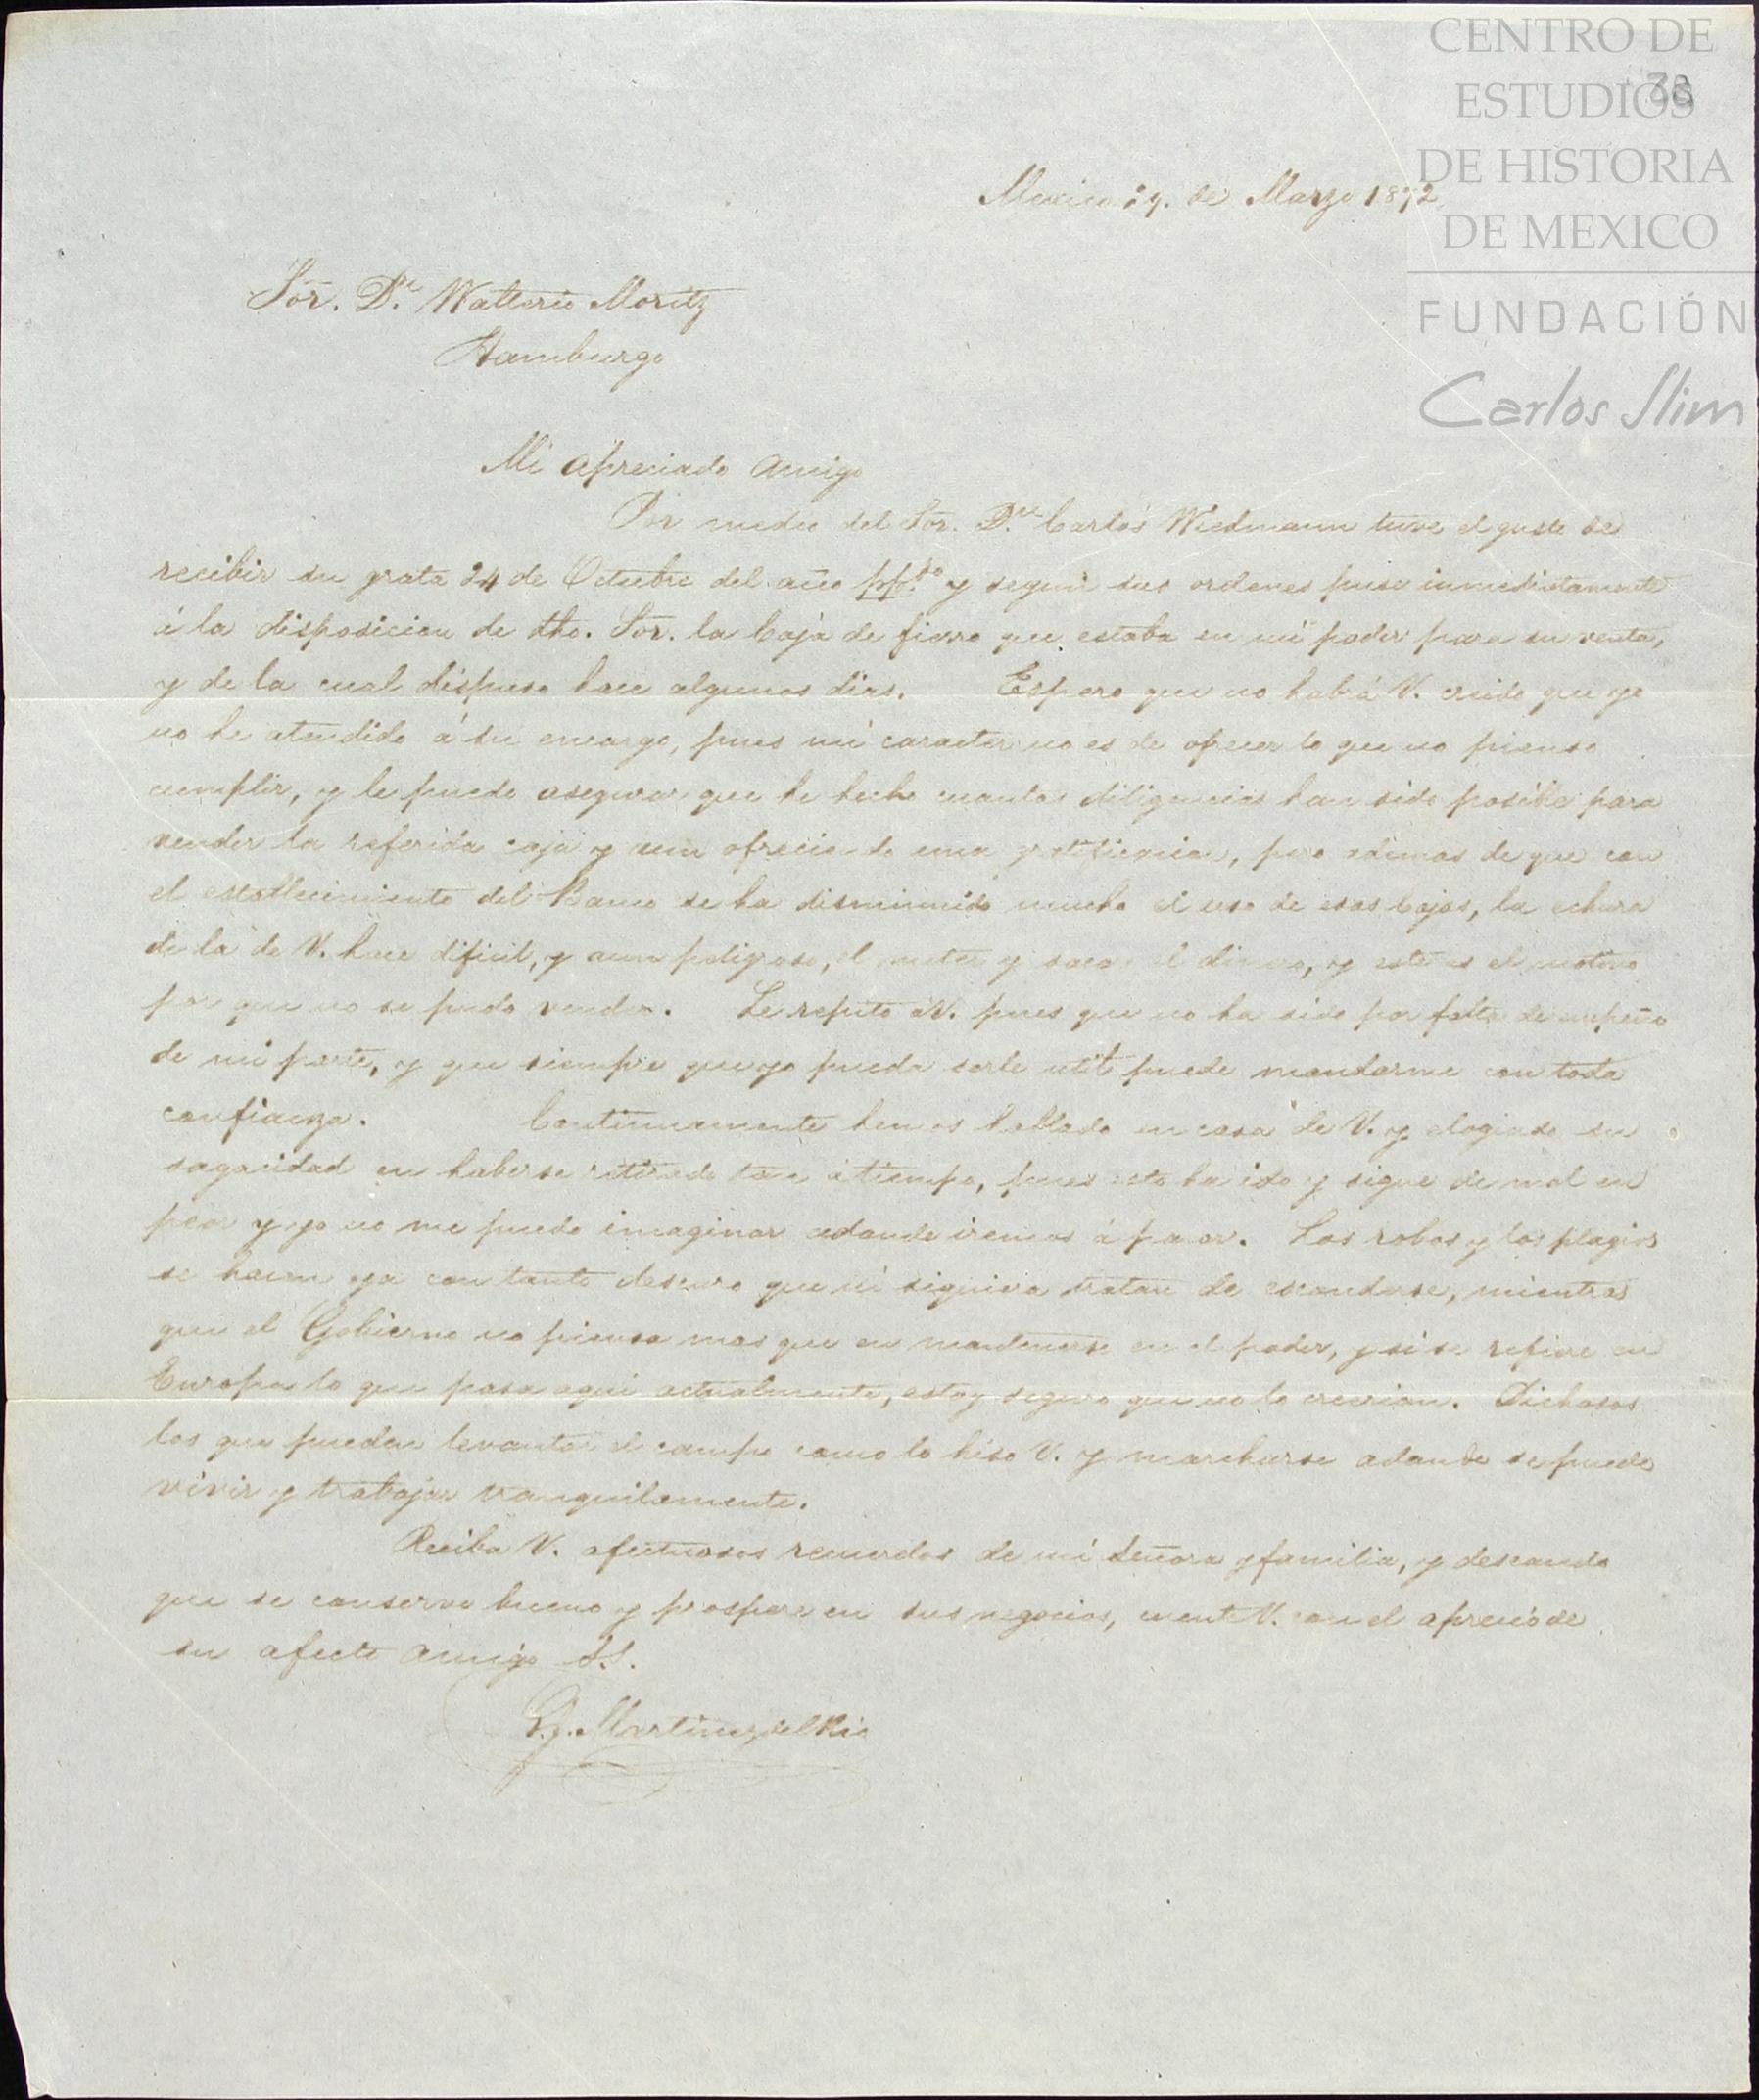 CENTRO DE
ESTUDIOS
DE HISTORIA
DE MEXICO
FUNDACIÓN
Carlos Slim
38
Mexico 29. de Marzo 1872
Sor. Dn. Walterio Moritz
Hamburgo
Mi apreciado amigo
Por medio del Sor. Dn. Carlos Wiedmann tuve el gusto de
recibir su grata 24 de Octubre del año ppdo. y segun sus ordenes puse inmediatamente
á la disposicion de dho. Sor. la Caja de fierro que estaba en mi poder para su venta,
y de la cual dispuso hace algunos dias. Espero que no habrá V. creido que yo
no he atendido á su encargo, pues mi caracter no es de ofrecer lo que no pienso
cumplir, y le puedo asegurar que he hecho cuantas diligencias han sido posible para
vender la referida caja y aun ofreciendo una gratificacion, pero ademas de que con
el establecimiento del Banco se ha disminuido mucho el uso de esas Cajas, la echura
de la de V. hace dificil, y aun peligroso, el meter y sacar el dinero, y este es el motivo
por que no se pudo vender. Le repito á V. pues que no ha sido por falta de empeño
de mi parte, y que siempre que yo pueda serle util puede mandarme con toda
confianza. Continuamente hemos hablado en casa de V. y elogiado su
sagacidad en haberse retirado tan á tiempo, pues esto ha ido y sigue de mal en
peor y yo no me puedo imaginar adonde iremos á parar. Los robos y los plagios
se hacen ya con tanto descaro que ni siquiera tratan de esconderse, mientras
que el Gobierno no piensa mas que en mantenerse en el poder, y si se refiere en
Europa lo que pasa aqui actualmente, estoy seguro que no lo creerian. Dichosos
los que pueden levantar el campo como lo hiso V. y marcharse adonde se puede
vivir y trabajar tranquilamente.
Reciba V. afectuosos recuerdos de mi Señora y familia, y deseando
que se conserve bueno y prospere en sus negocios, cuente V. con el aprecio de
su afecto amigo S.S.
Martinez del Rio